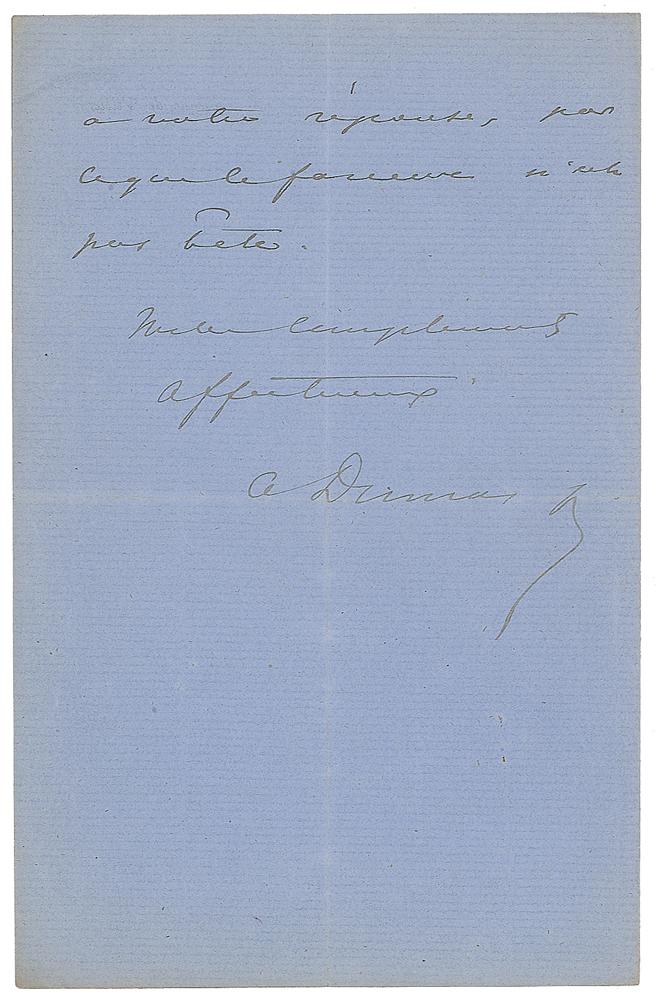 a votre réponse, par
ce que le farceur n'est
pas bête.
Mille compliments
affectueux
A Dumas f